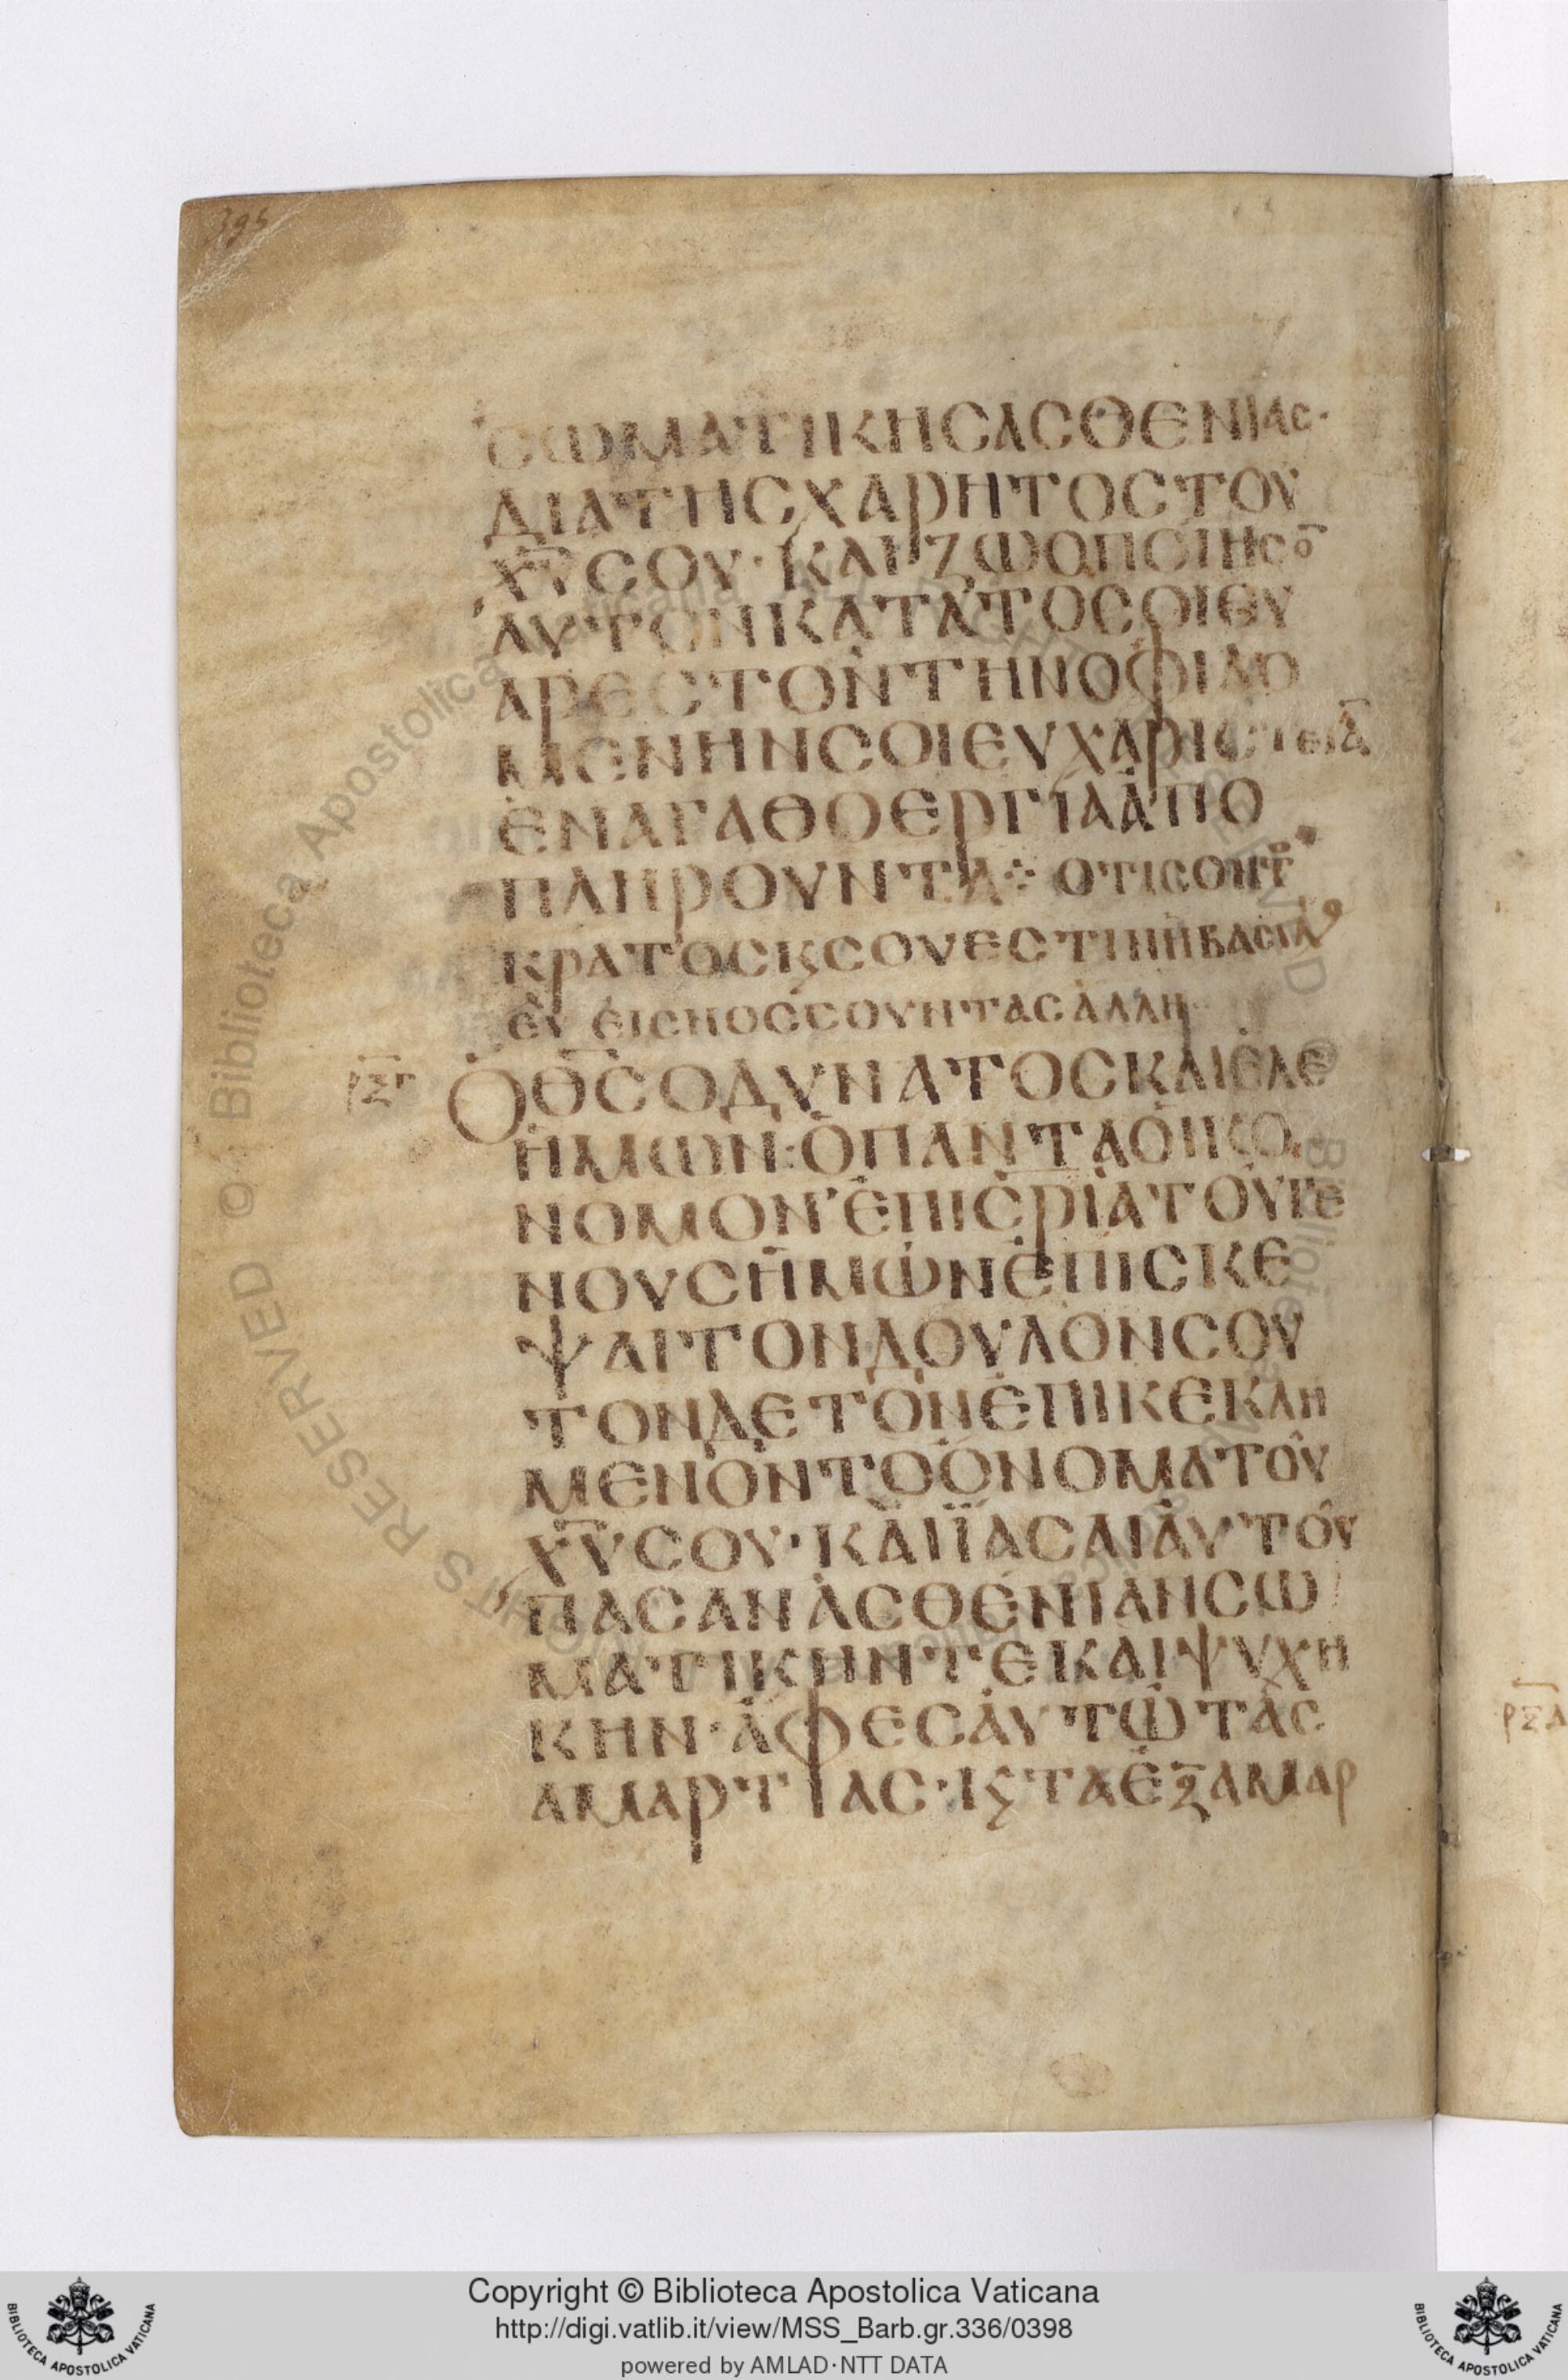 395
ϹΩΜΑΤΙΚΗϹΑϹΘΕΝΙΑϹ·
ΔΙΑΤΗϹΧΑΡΗΤΟϹΤΟΥ
Χ̅Υ̅ϹΟΥ·ΚΑΙΖΩΟΠΟΙΗϹΟ̅
ΑΥΤΟΝΚΑΤΑΤΟϹΟΙΕΥ
ΑΡΕϹΤΟΝΤΗΝΟΦΙΛΟ
ΜΕΝΗΝϹΟΙΕΥΧΑΡΙϹΤΕΙΑ̅
ΕΝΑΓΑΘΟΕΡΓΙΑΑΠΟ
ΠΛΗΡΟΥΝΤΑ⁘ΟΤΙϹΟΝΤ
ΚΡΑΤΟϹϗϹΟΥΕϹΤΙΝΗΒΑϹΙΛ
ΕΥ ΕΙϹΗΟϹϹΟΥΝΤΑϹΑΛΛΗ
ρξγ ΟΘ̅Ϲ̅ΟΔΥΝΑΤΟϹΚΑΙΕΛΕ
ΗΜΩΝ·ΟΠΑΝΤΑΟΙΚΟ
ΝΟΜΟΝ·ΕΠΙϹ̅Ρ̅Ι̅ΑΤΟΥΓΕ
ΝΟΥϹΗΜΩΝΕΠΙϹΚΕ
ΨΑΙΤΟΝΔΟΥΛΟΝϹΟΥ
ΤΟΝΔΕΤΟΝΕΠΙΚΕΚΛΗ
ΜΕΝΟΝΤΟΟΝΟΜΑΤΟΥ
Χ̅Υ̅ϹΟΥ·ΚΑΙΪΑϹΑΙΑΥΤΟΥ
ΠΑϹΑΝΑϹΘΕΝΙΑΝϹΩ
ΜΑΤΙΚΗΝΤΕΚΑΙΨΥΧΗ
ΚΗΝ·ΑΦΕϹΑΥΤΩΤΑϹ
ΑΜΑΡΤΙΑϹ·ϗΤΑΕΞΑΜΑΡ
ρξδ
Copyright © Biblioteca Apostolica Vaticana
http://digi.vatlib.it/view/MSS_Barb.gr.336/0398
powered by AMLAD·NTT DATA
BIBLIOTECA APOSTOLICA VATICANA
BIBLIOTECA APOSTOLICA VATICANA